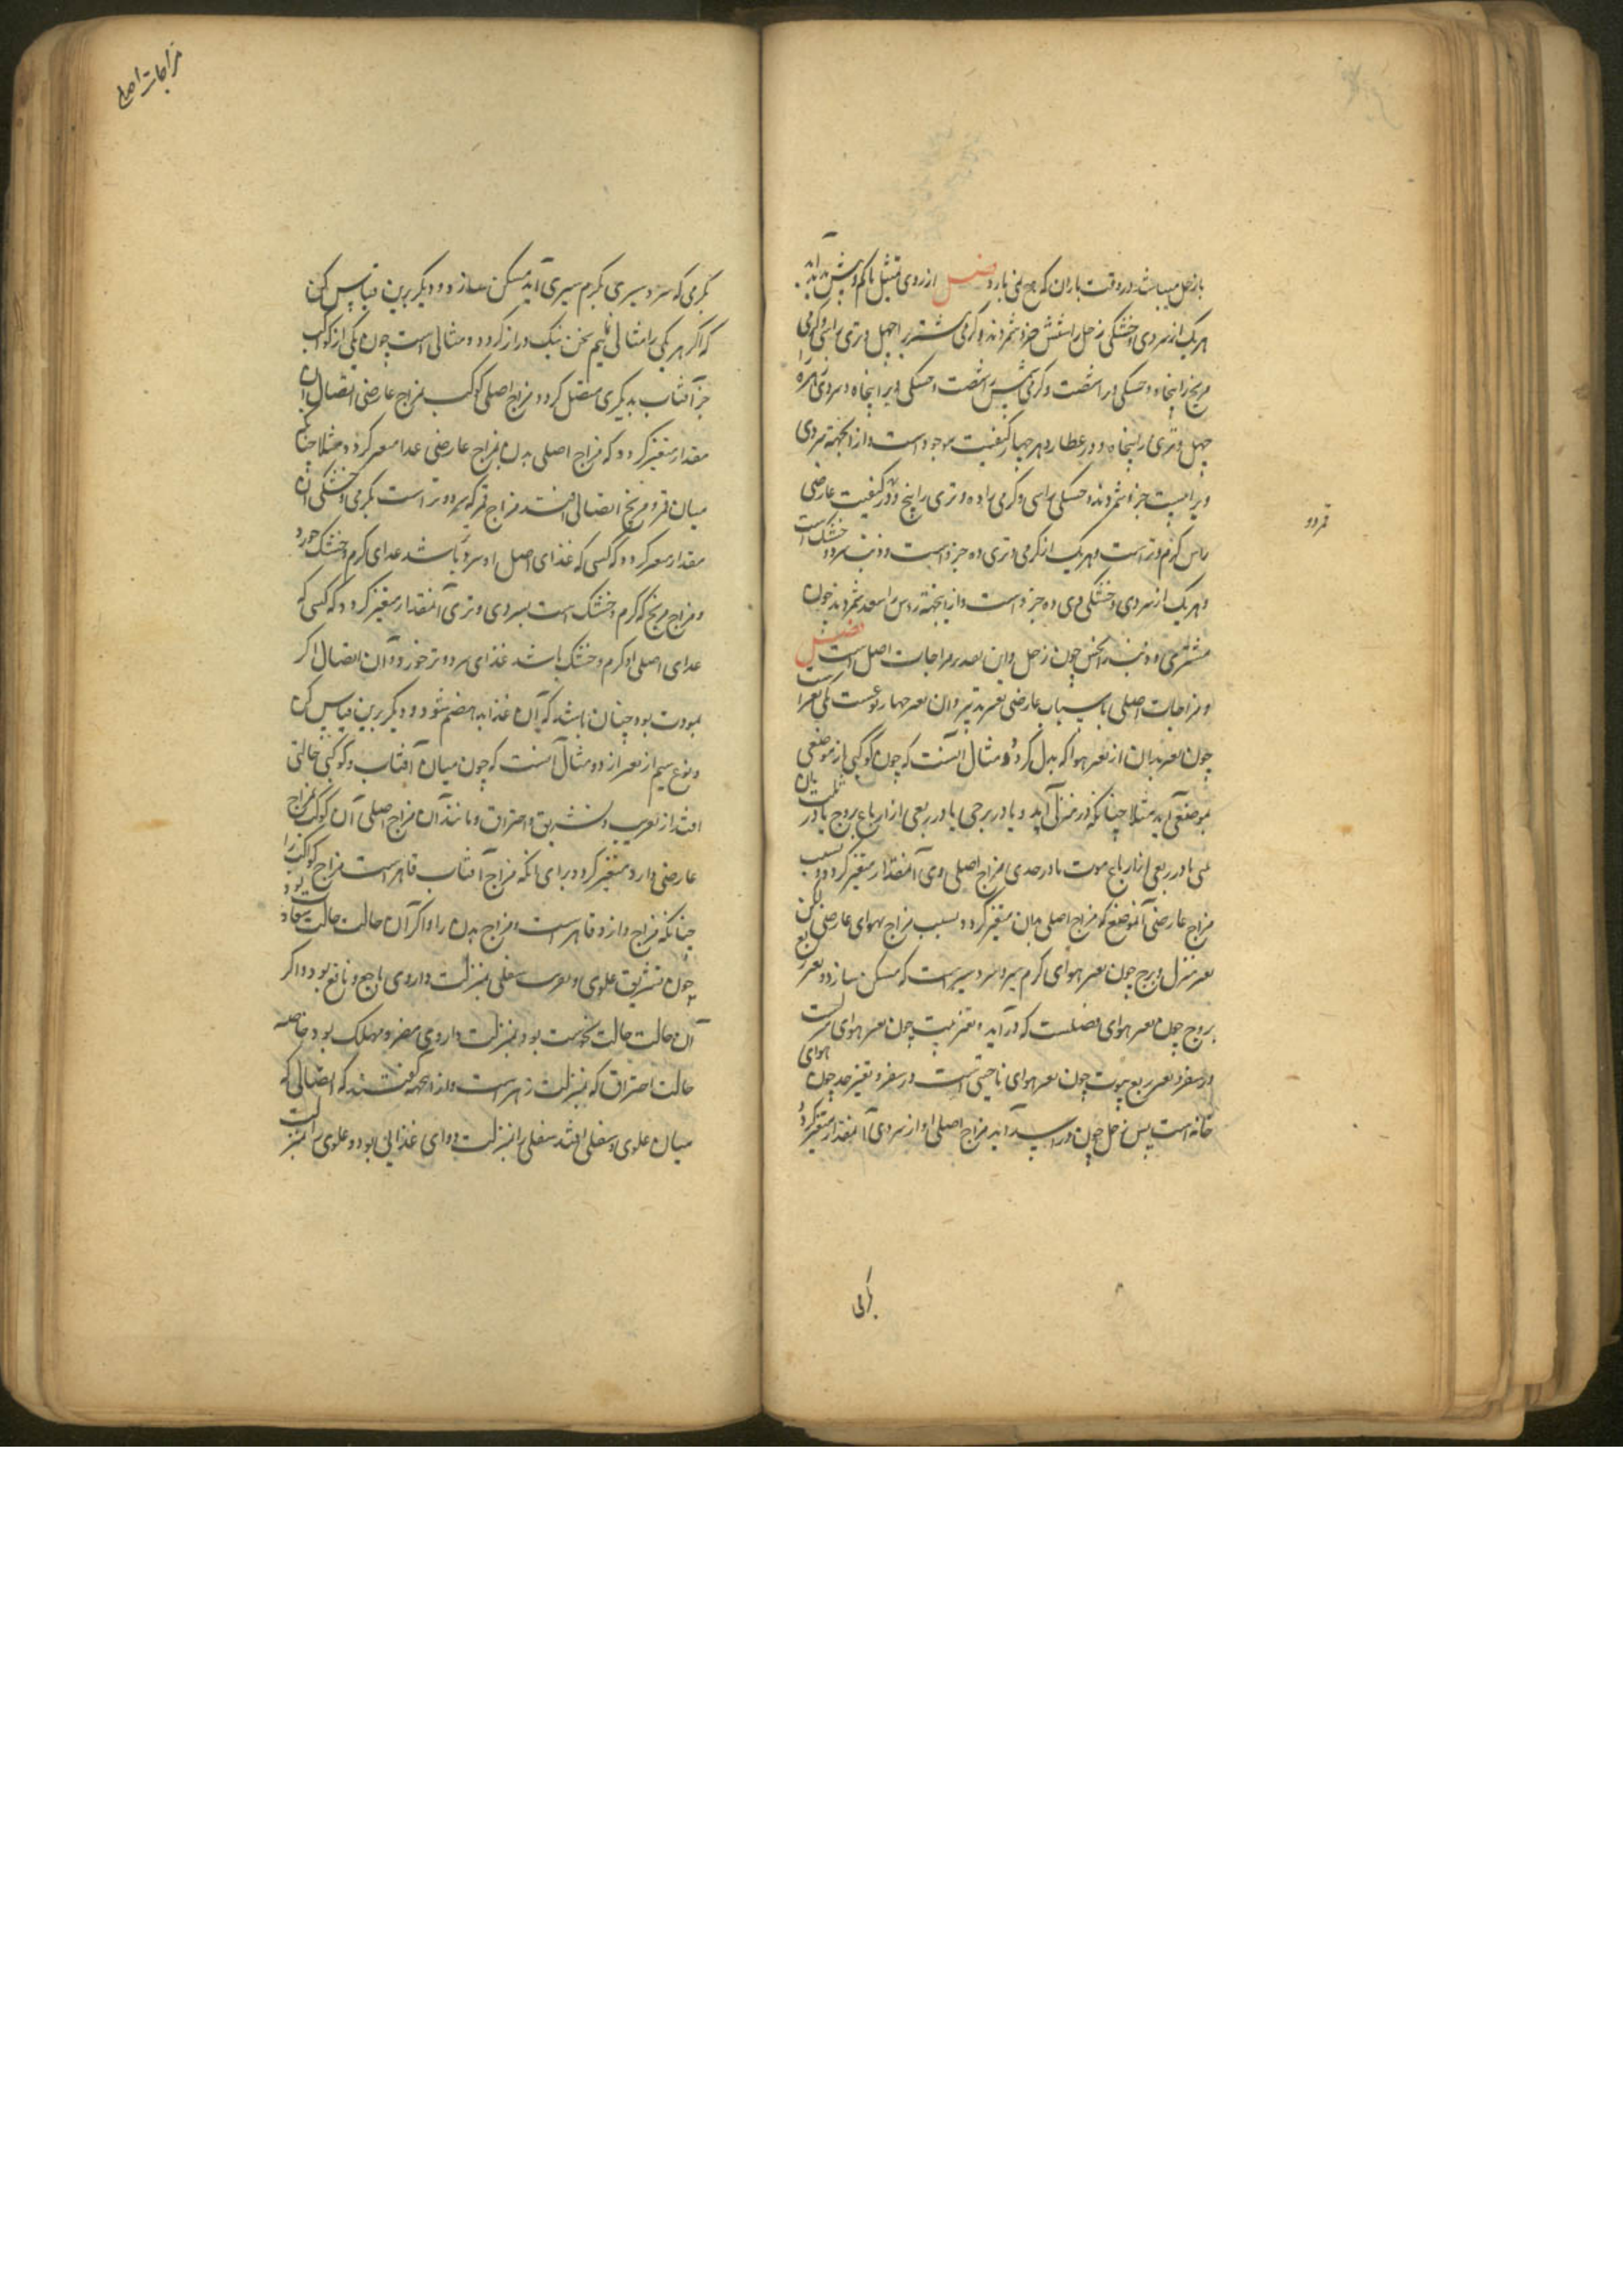 باز حل میباشد در وقت باران که هیچ نمی بارد فصل از روی تمثیل تا کم و بیش بدانند
هر یک از سردی و خشکی زحل را شش جزو شمردند و گرمی مشتری را چهل و تری را سی و گرمی
مریخ را پنجاه و خشکی را شصت و گرمی شمس را شصت و خشکی ویرا پنجاه و سردی زهره را
چهل و تری را پنجاه و در عطارد هر چهار کیفیت موجود است و از انجهة سردی
ویرا بیست جزو شمردند و خشکی را سی و گرمی را ده و تری را پنج و در کیفیت عارضی
راس گرم و تر است و هر یک از گرمی و تری ده جزو است و ذنب سرد و خشک است
و هر یک از سردی و خشکی وی ده جزو است و از انجهة راس را سعد شمردند چون
مشتری و ذنب را نحس چون زحل و این بعد بر مزاجات اصل است فصل
و مزاجات اصلی با سباب عارضی تغیر پذیر و ان تغیر چهار نوعست یکی تغیر
چون تغیر بدن از تغیر هوا که بدل گردد و مثال آنست که چون کوکبی از موضعی
بموضعی آید مثلا چنانکه در منزلی آید و یا در برجی یا در ربعی از ارباع بروج یا در
یا در ربعی از ارباع بیوت یا در حدی مزاج اصلی وی آنمقدار متغیر گردد بسبب
مزاج عارضی آنموضع که مزاج اصلی بدان متغیر گردد بسبب مزاج هوای عارضی لیکن
تغیر منزل و برج چون تغیر هوای گرم سیر و سرد سیر است که مسکن سازد و تغیر ربع
بروج چون تغیر هوای فصلست که در آید و تغیر بیت چون تغیر هوای
در سفر و تغیر ربع بیوت چون تغیر هوای ناحیتی است در سفر و تغیر حد چون هوای
خانه است پس زحل چون در اسد آید مزاج اصلی او از سردی آنمقدار متغیر گردد
قمر دو
مزاجات اصلی
بگرمی که سرد سیری بگرم سیری آید مسکن سازد و دیگر برین قیاس کن
که اگر هر یکی را مثالی نهیم سخن نیک دراز گردد و مثالی است چون یکی از کواکب
جز آفتاب بدیگری متصل گردد مزاج اصلی کوکب بمزاج عارضی اتصال آن
مقدار متغیر گردد که مزاج اصلی بدن بمزاج عارضی غذا متغیر گردد مثلا چنانکه
میان قمر و مریخ اتصالی افتد مزاج قمر که سرد و تر است بگرمی و خشکی آن
مقدار متغیر گردد که کسی که غذای اصل او سرد باشد غذای گرم و خشک خورد
و مزاج مریخ که گرم و خشک است بسردی و تری آنمقدار متغیر گردد که کسی که
غذای اصلی او گرم و خشک باشد غذای سرد و تر خورد و آن اتصال اگر
بمودت بود چنان باشد که آن غذا بد هضم شود و دیگر برین قیاس کن
و نوع سیم از تغیر از دو مثال آنست که چون میان آفتاب و کوکبی حالتی
افتد از تغریب و تشریق و احتراق و مانند آن مزاج اصلی آن کوکب بمزاج
عارضی دارو متغیر گردد برای آنکه مزاج آفتاب قاهر است مزاج کواکب را
چنانکه مزاج دارو قاهر است مزاج بدن را و اگر آن حالت حالت سعادت بود
چون تشریق علوی و تغریب سفلی بمنزلت داروی ناجع و نافع بود و اگر
آن حالت حالت نحوست بود بمنزلت داروی مضر و مهلک بود خاصه
حالت احتراق که بمنزلت زهر است و از انجهة گفتند که اتصالی که
میان علوی و سفلی افتد سفلی را بمنزلت دوای غذایی بود و علوی را بمنزلت